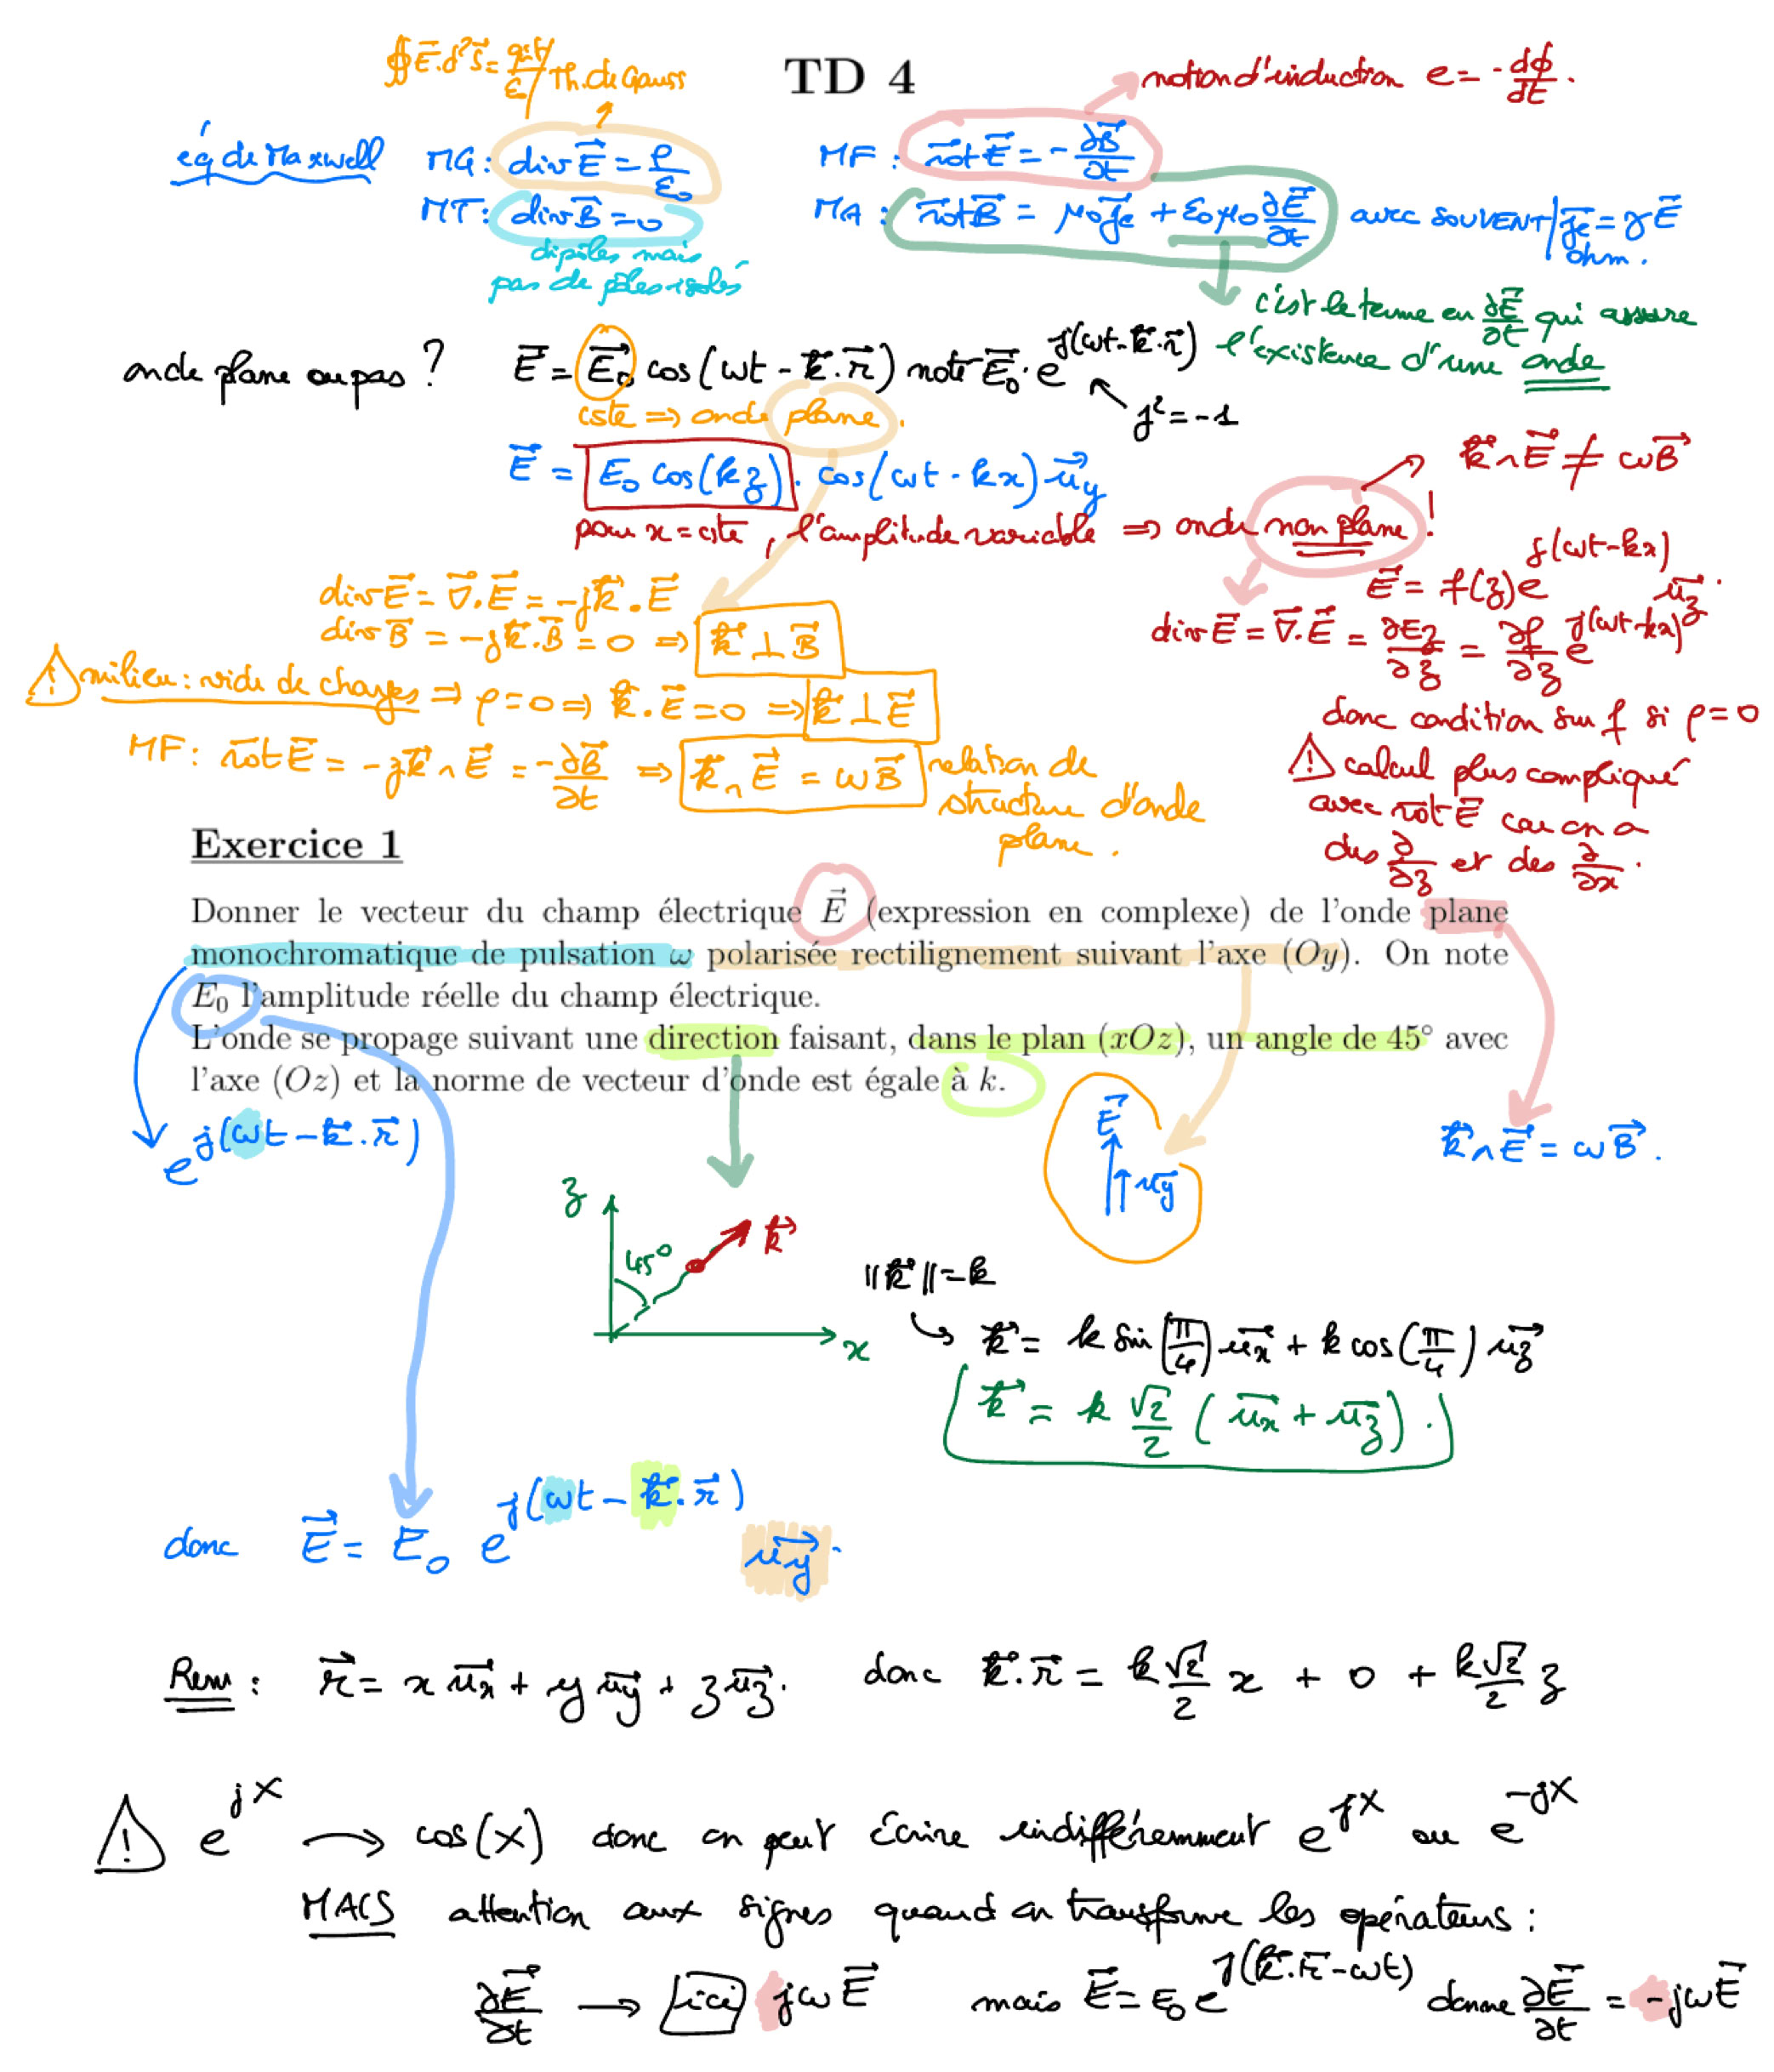 ∯ E⃗.d²S⃗ = q int/ε₀ Th. de Gauss
TD 4
notion d'induction e = - dϕ/dt .
éq de Maxwell MG : div E⃗ = ρ/ε₀ MF : rot⃗ E⃗ = - ∂B⃗/∂t
MT : div B⃗ = 0 MA : rot⃗ B⃗ = μ₀ j⃗c + ε₀ μ₀ ∂E⃗/∂t avec SOUVENT / j⃗c = γ E⃗
ohm .
dipôles mais
pas de pôles isolés
c'est le terme en ∂E⃗/∂t qui assure
l'existence d'une onde
onde plane ou pas ? E⃗ = E⃗₀ cos (ωt - k⃗.r⃗) noté E⃗₀ . e^{j(ωt - k⃗.r⃗)}
j² = -1
cste ⇒ onde plane .
E⃗ = E₀ cos(kz) . cos(ωt - kx) u⃗y
k⃗ ∧ E⃗ ≠ ωB⃗
pour x = cste , l'amplitude variable ⇒ onde non plane !
E⃗ = f(z) e^{j(ωt-kx)} u⃗z .
div E⃗ = ∇⃗.E⃗ = ∂Ez/∂z = ∂f/∂z e^{j(ωt-kx)}
donc condition sur f si ρ = 0
⚠ calcul plus compliqué
avec rot⃗ E⃗ car on a
des ∂/∂z et des ∂/∂x .
div E⃗ = ∇⃗.E⃗ = -jk⃗ . E⃗
div B⃗ = -jk⃗.B⃗ = 0 ⇒ k⃗ ⊥ B⃗
⚠ milieu : vide de charges ⇒ ρ = 0 ⇒ k⃗.E⃗ = 0 ⇒ k⃗ ⊥ E⃗
MF : rot⃗ E⃗ = -jk⃗ ∧ E⃗ = - ∂B⃗/∂t ⇒ k⃗ ∧ E⃗ = ωB⃗
relation de
structure d'onde
plane .
Exercice 1
Donner le vecteur du champ électrique E⃗ (expression en complexe) de l'onde plane
monochromatique de pulsation ω polarisée rectilignement suivant l'axe (Oy). On note
E₀ l'amplitude réelle du champ électrique.
L'onde se propage suivant une direction faisant, dans le plan (xOz), un angle de 45° avec
l'axe (Oz) et la norme de vecteur d'onde est égale à k.
e^{j(ωt - k⃗.r⃗)}
E⃗
u⃗y
k⃗ ∧ E⃗ = ωB⃗ .
z
45°
k⃗
x
||k⃗|| = k
k⃗ = k sin(π/4) u⃗x + k cos(π/4) u⃗z
k⃗ = k √2/2 ( u⃗x + u⃗z ) .
donc E⃗ = E₀ e^{j(ωt - k⃗.r⃗)} u⃗y .
Rem : r⃗ = x u⃗x + y u⃗y + z u⃗z . donc k⃗.r⃗ = k√2/2 x + 0 + k√2/2 z
⚠ e^{jX} → cos(X) donc on peut écrire indifféremment e^{jX} ou e^{-jX}
MAIS attention aux signes quand on transforme les opérateurs :
∂E⃗/∂t → ici jωE⃗ mais E⃗ = E₀ e^{j(k⃗.r⃗ - ωt)} donne ∂E⃗/∂t = -jωE⃗